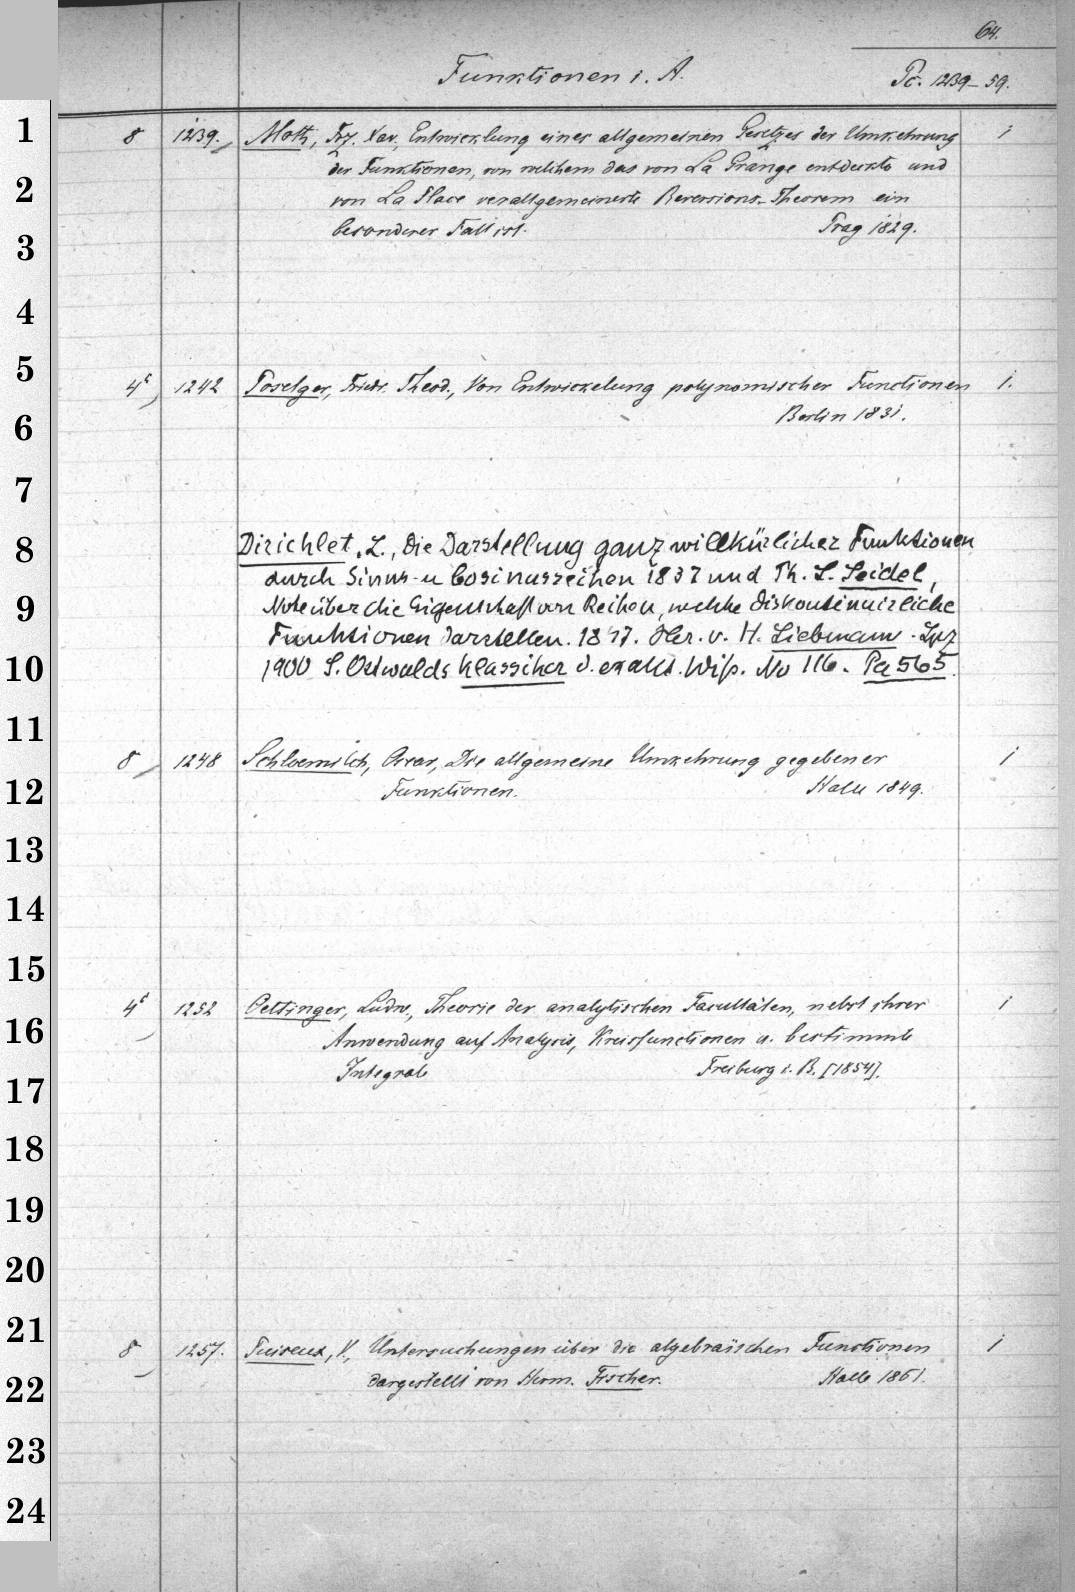 64.
Funktionen i. A.
Pc. 1239-59.
1
8 1239. Moth, Frz. Xav., Entwicklung eines allgemeinen Gesetzes der Umkehrung 1
2
der Funktionen, von welchem das von La Grange entdeckte und
von La Place verallgemeinerte Reversions-Theorem ein
3
besonderer Fall ist. Prag 1829.
4
5
4° 1242 Poselger, Friedr. Theod., Von Entwickelung polynomischer Functionen 1.
6
Berlin 1831.
7
8
Dirichlet, L., Die Darstellung ganz willkürlicher Funktionen
durch Sinus- u Cosinusreihen 1837 und Ph. L. Seidel,
9
Note über die Eigenschaft von Reihen, welche diskontinuirliche
Funktionen darstellen. 1847. Her. v. H. Liebmann. Lpz
10
1900 S. Ostwalds Klassiker d. exakt. Wiss. No 116. Pa 565.
11
8 1248 Schloemilch, Oscar, Die allgemeine Umkehrung gegebener 1
12
Funktionen. Halle 1849.
13
14
15
4° 1252 Oettinger, Ludw., Theorie der analytischen Facultäten, nebst ihrer 1
16
Anwendung auf Analysis, Kreisfunctionen u. bestimmte
17
Integrale Freiburg i. B. [1854].
18
19
20
21
8 1257. Puiseux, V., Untersuchungen über die algebraischen Functionen 1
22
dargestellt von Herm. Fischer. Halle 1861.
23
24